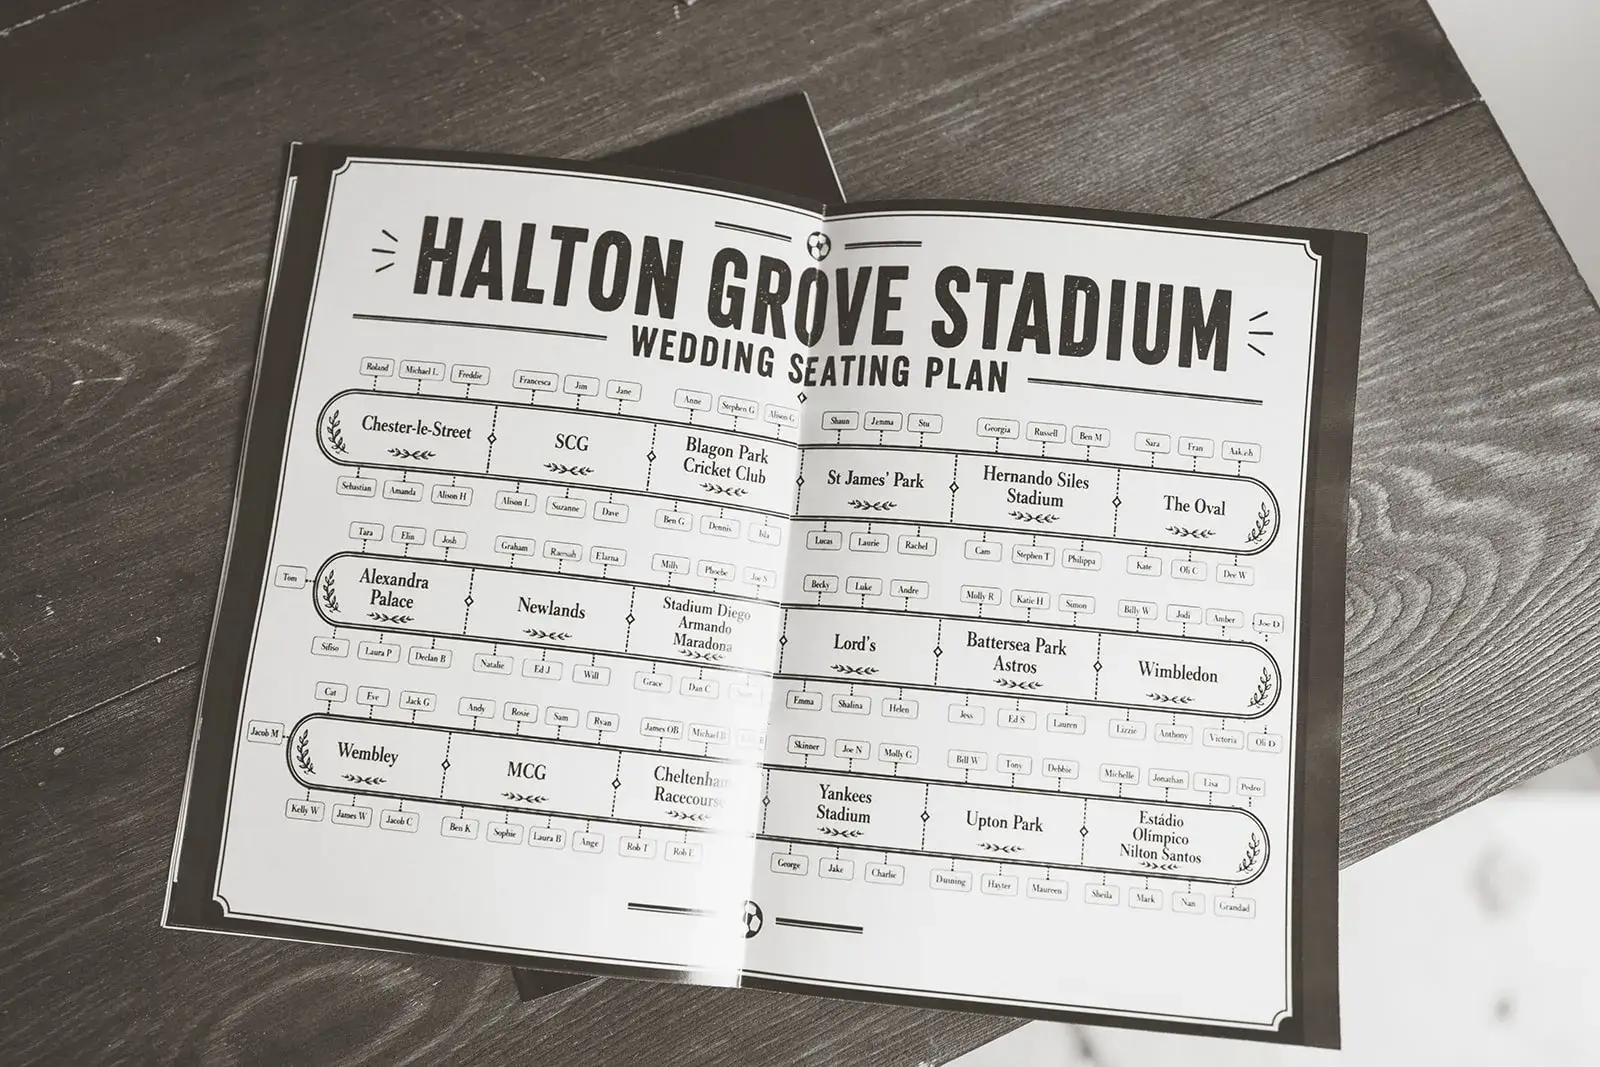 HALTON GROVE STADIUM
WEDDING SEATING PLAN
Roland Michael L Freddie Francesca Jim Jane Anne Stephen G Alison G Shaun Jemma Stu Georgia Russell Ben M Sara Fran
Chester-le-Street
SCG
Blagon Park
Cricket Club
St James' Park
Hernando Siles
Stadium
The Oval
Sebastian Amanda Alison H Alison L Suzanne Dave Ben G Dennis Isla Lucas Laurie Rachel Cam Stephen T Philippa Kate Oli C Dee W
Tara Elin Josh Graham Elarna Milly Phoebe Joe S Becky Luke Andre Molly R Katie H Simon Billy W Jodi Amber Joe D
Tom
Alexandra
Palace
Newlands
Stadium Diego
Armando
Maradona
Lord's
Battersea Park
Astros
Wimbledon
Sifiso Laura P Declan B Natalie Ed J Will Grace Dan C Emma Shalina Helen Jess Ed S Lauren Lizzie Anthony Victoria Oli D
Cat Eve Jack G Andy Rosie Sam Ryan James OB Michael B Skinner Joe N Molly G Bill W Tony Debbie Michelle Jonathan Lisa Pedro
Jacob M
Wembley
MCG
Cheltenham
Racecourse
Yankees
Stadium
Upton Park
Estádio
Olímpico
Nilton Santos
Kelly W James W Jacob C Ben K Sophie Laura B Ange Rob T Rob L George Jake Charlie Dunning Hayter Maureen Sheila Mark Nan Grandad